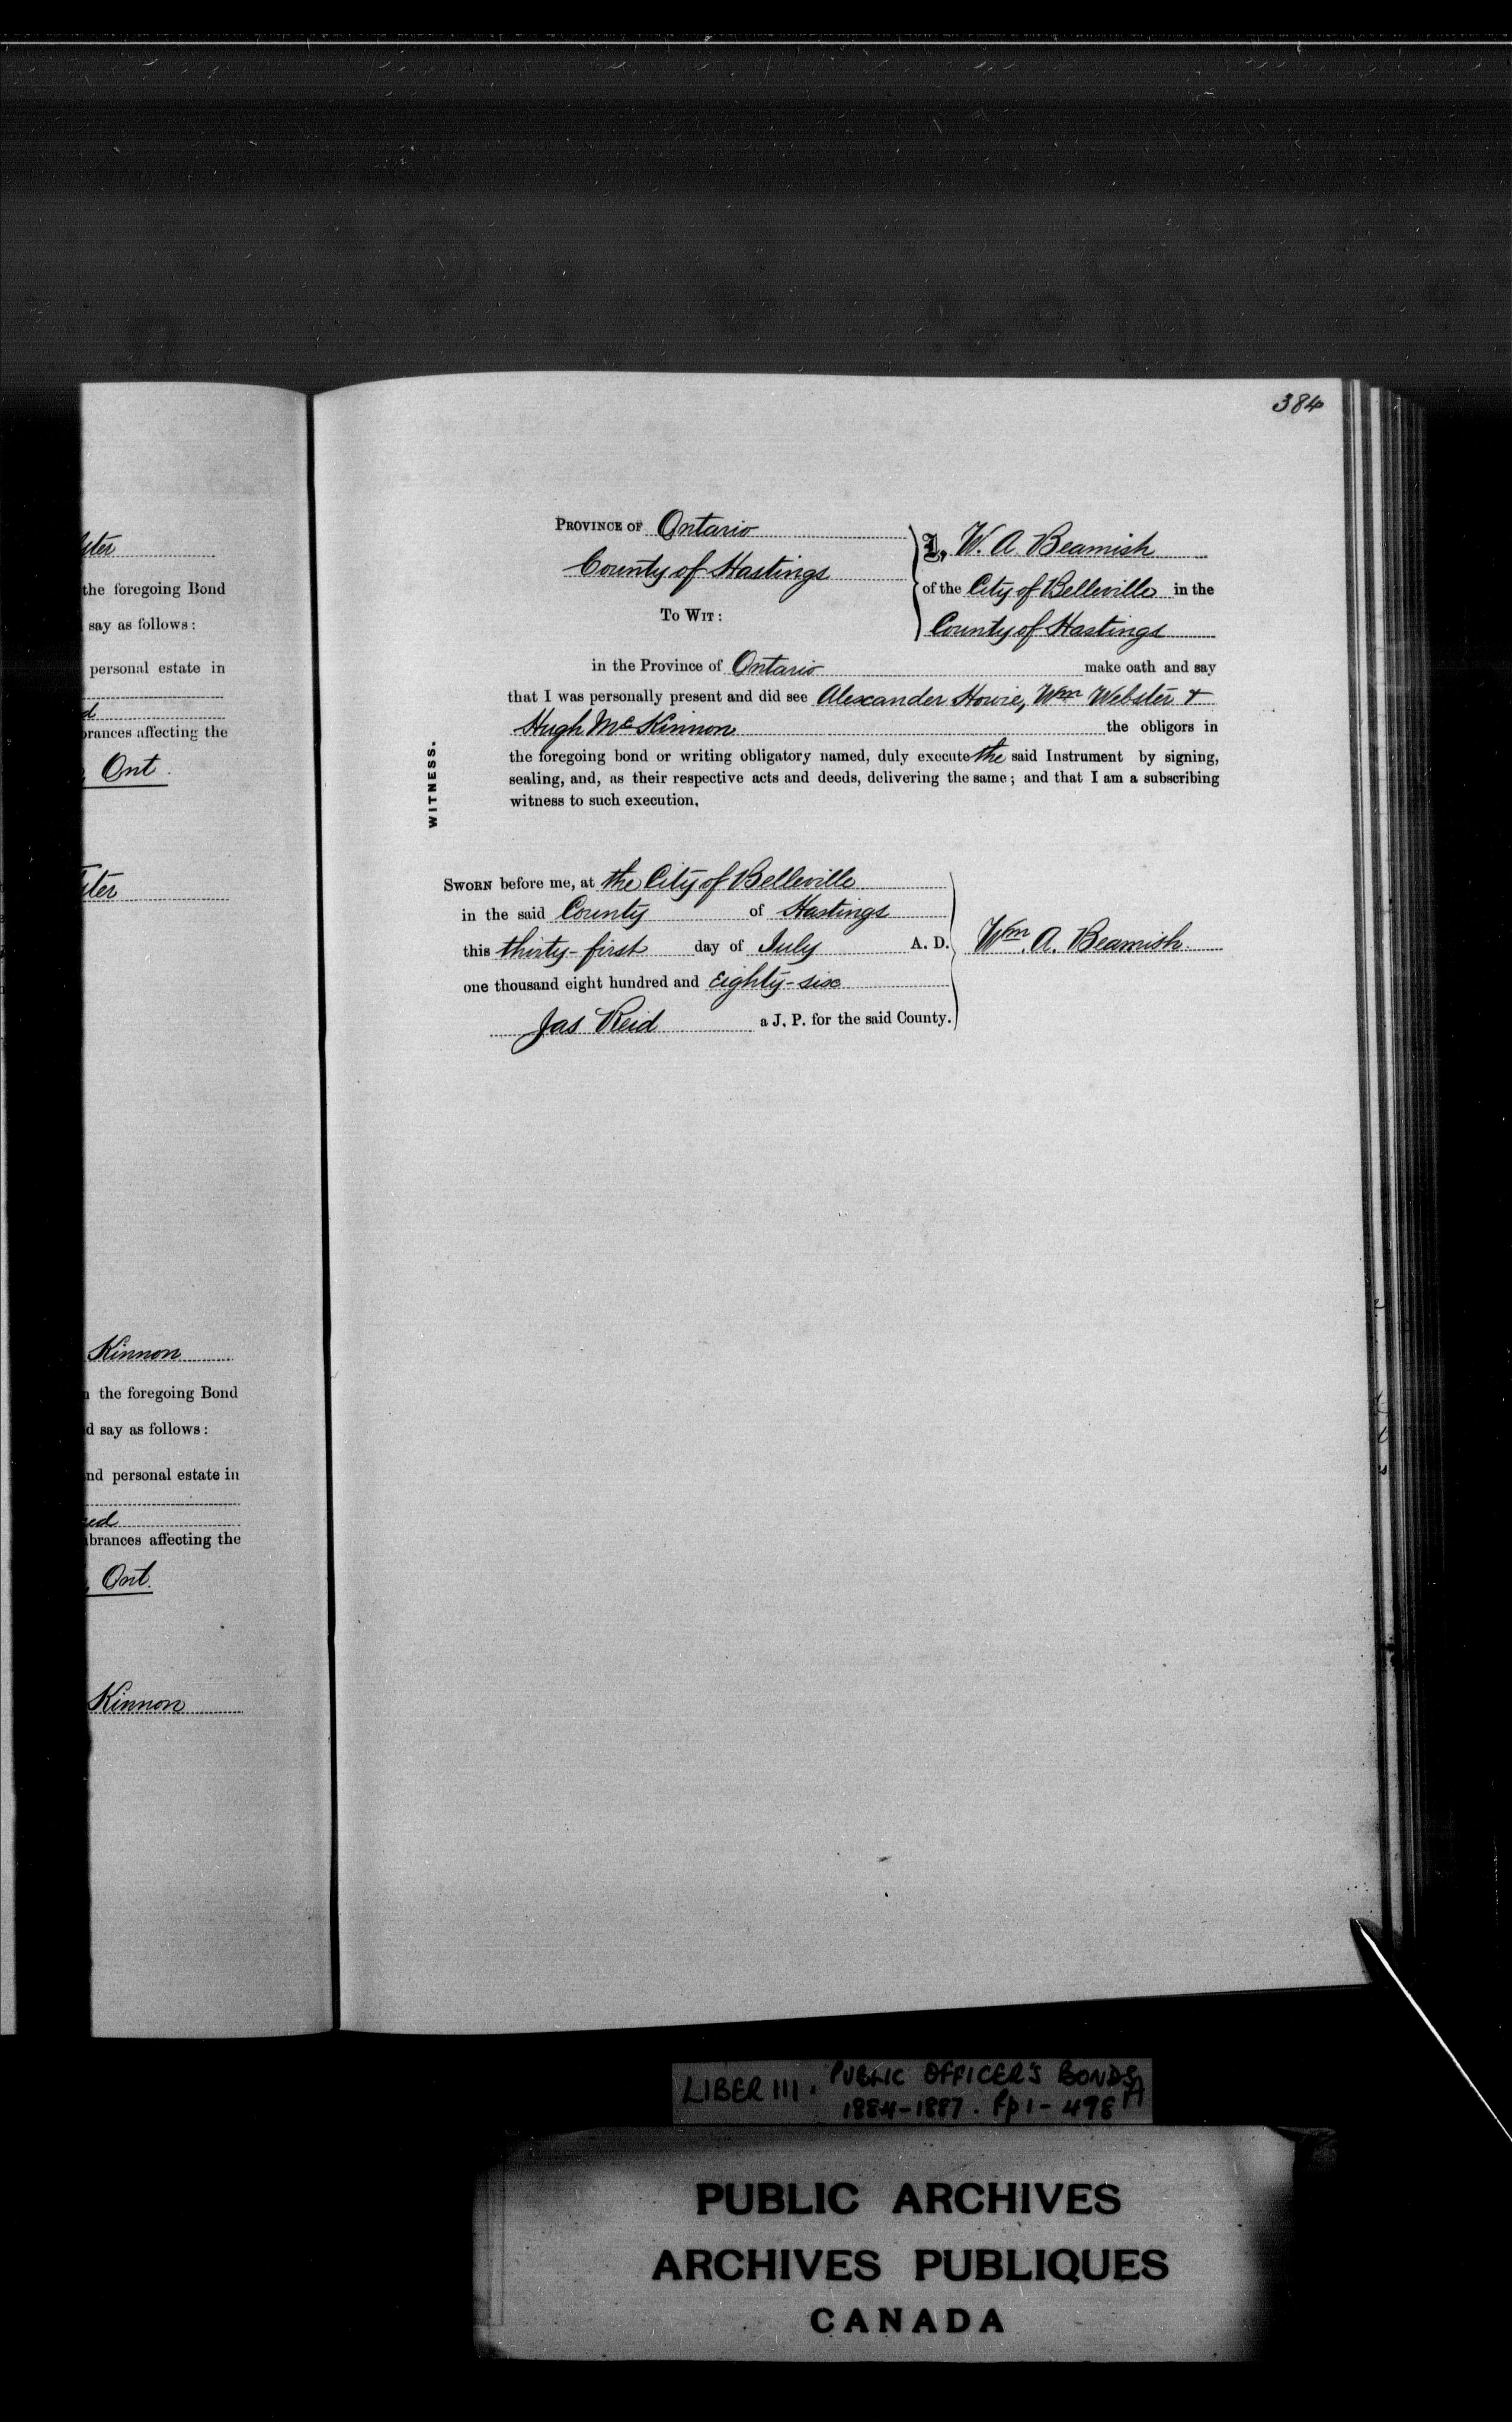 ster
the foregoing Bond
say as follows:
personal estate in
d
brances affecting the
, Ont.
ster
Kinnon
the foregoing Bond
d say as follows:
nd personal estate in
ed
brances affecting the
, Ont.
Kinnon
384
PROVINCE OF Ontario
County of Hastings
TO WIT:
I, W. A. Beamish
of the City of Belleville in the
County of Hastings
in the Province of Ontario make oath and say
that I was personally present and did see Alexander Howie, Wm Webster &
Hugh McKinnon the obligors in
the foregoing bond or writing obligatory named, duly execute the said Instrument by signing,
sealing, and, as their respective acts and deeds, delivering the same; and that I am a subscribing
witness to such execution.
WITNESS.
SWORN before me, at the City of Belleville
in the said County of Hastings
this thirty-first day of July A. D.
one thousand eight hundred and Eighty-six
Jas Reid a J. P. for the said County.
Wm. A. Beamish
LIBER III. PUBLIC OFFICER'S BONDS
1884-1887. pp 1-498A
PUBLIC ARCHIVES
ARCHIVES PUBLIQUES
CANADA